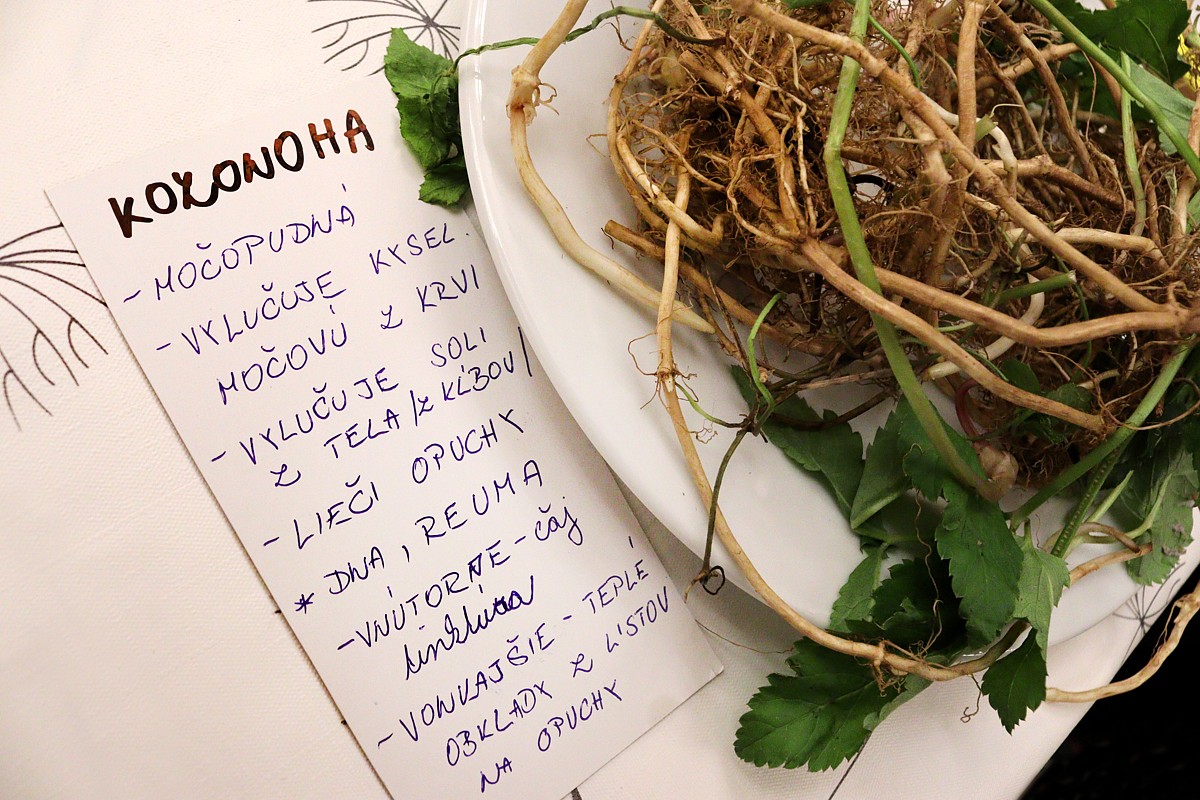 KOZONOHA
- MOČOPUDNÁ
- VYLUČUJE KYSEL.
MOČOVÚ Z KRVI
- VYLUČUJE SOLI
Z TELA /Z KĹBOV/
- LIEČI OPUCHY
* DNA, REUMA
- VNÚTORNE - čaj
tinktúra
- VONKAJŠIE - TEPLÉ
OBKLADY Z LISTOV
NA OPUCHY